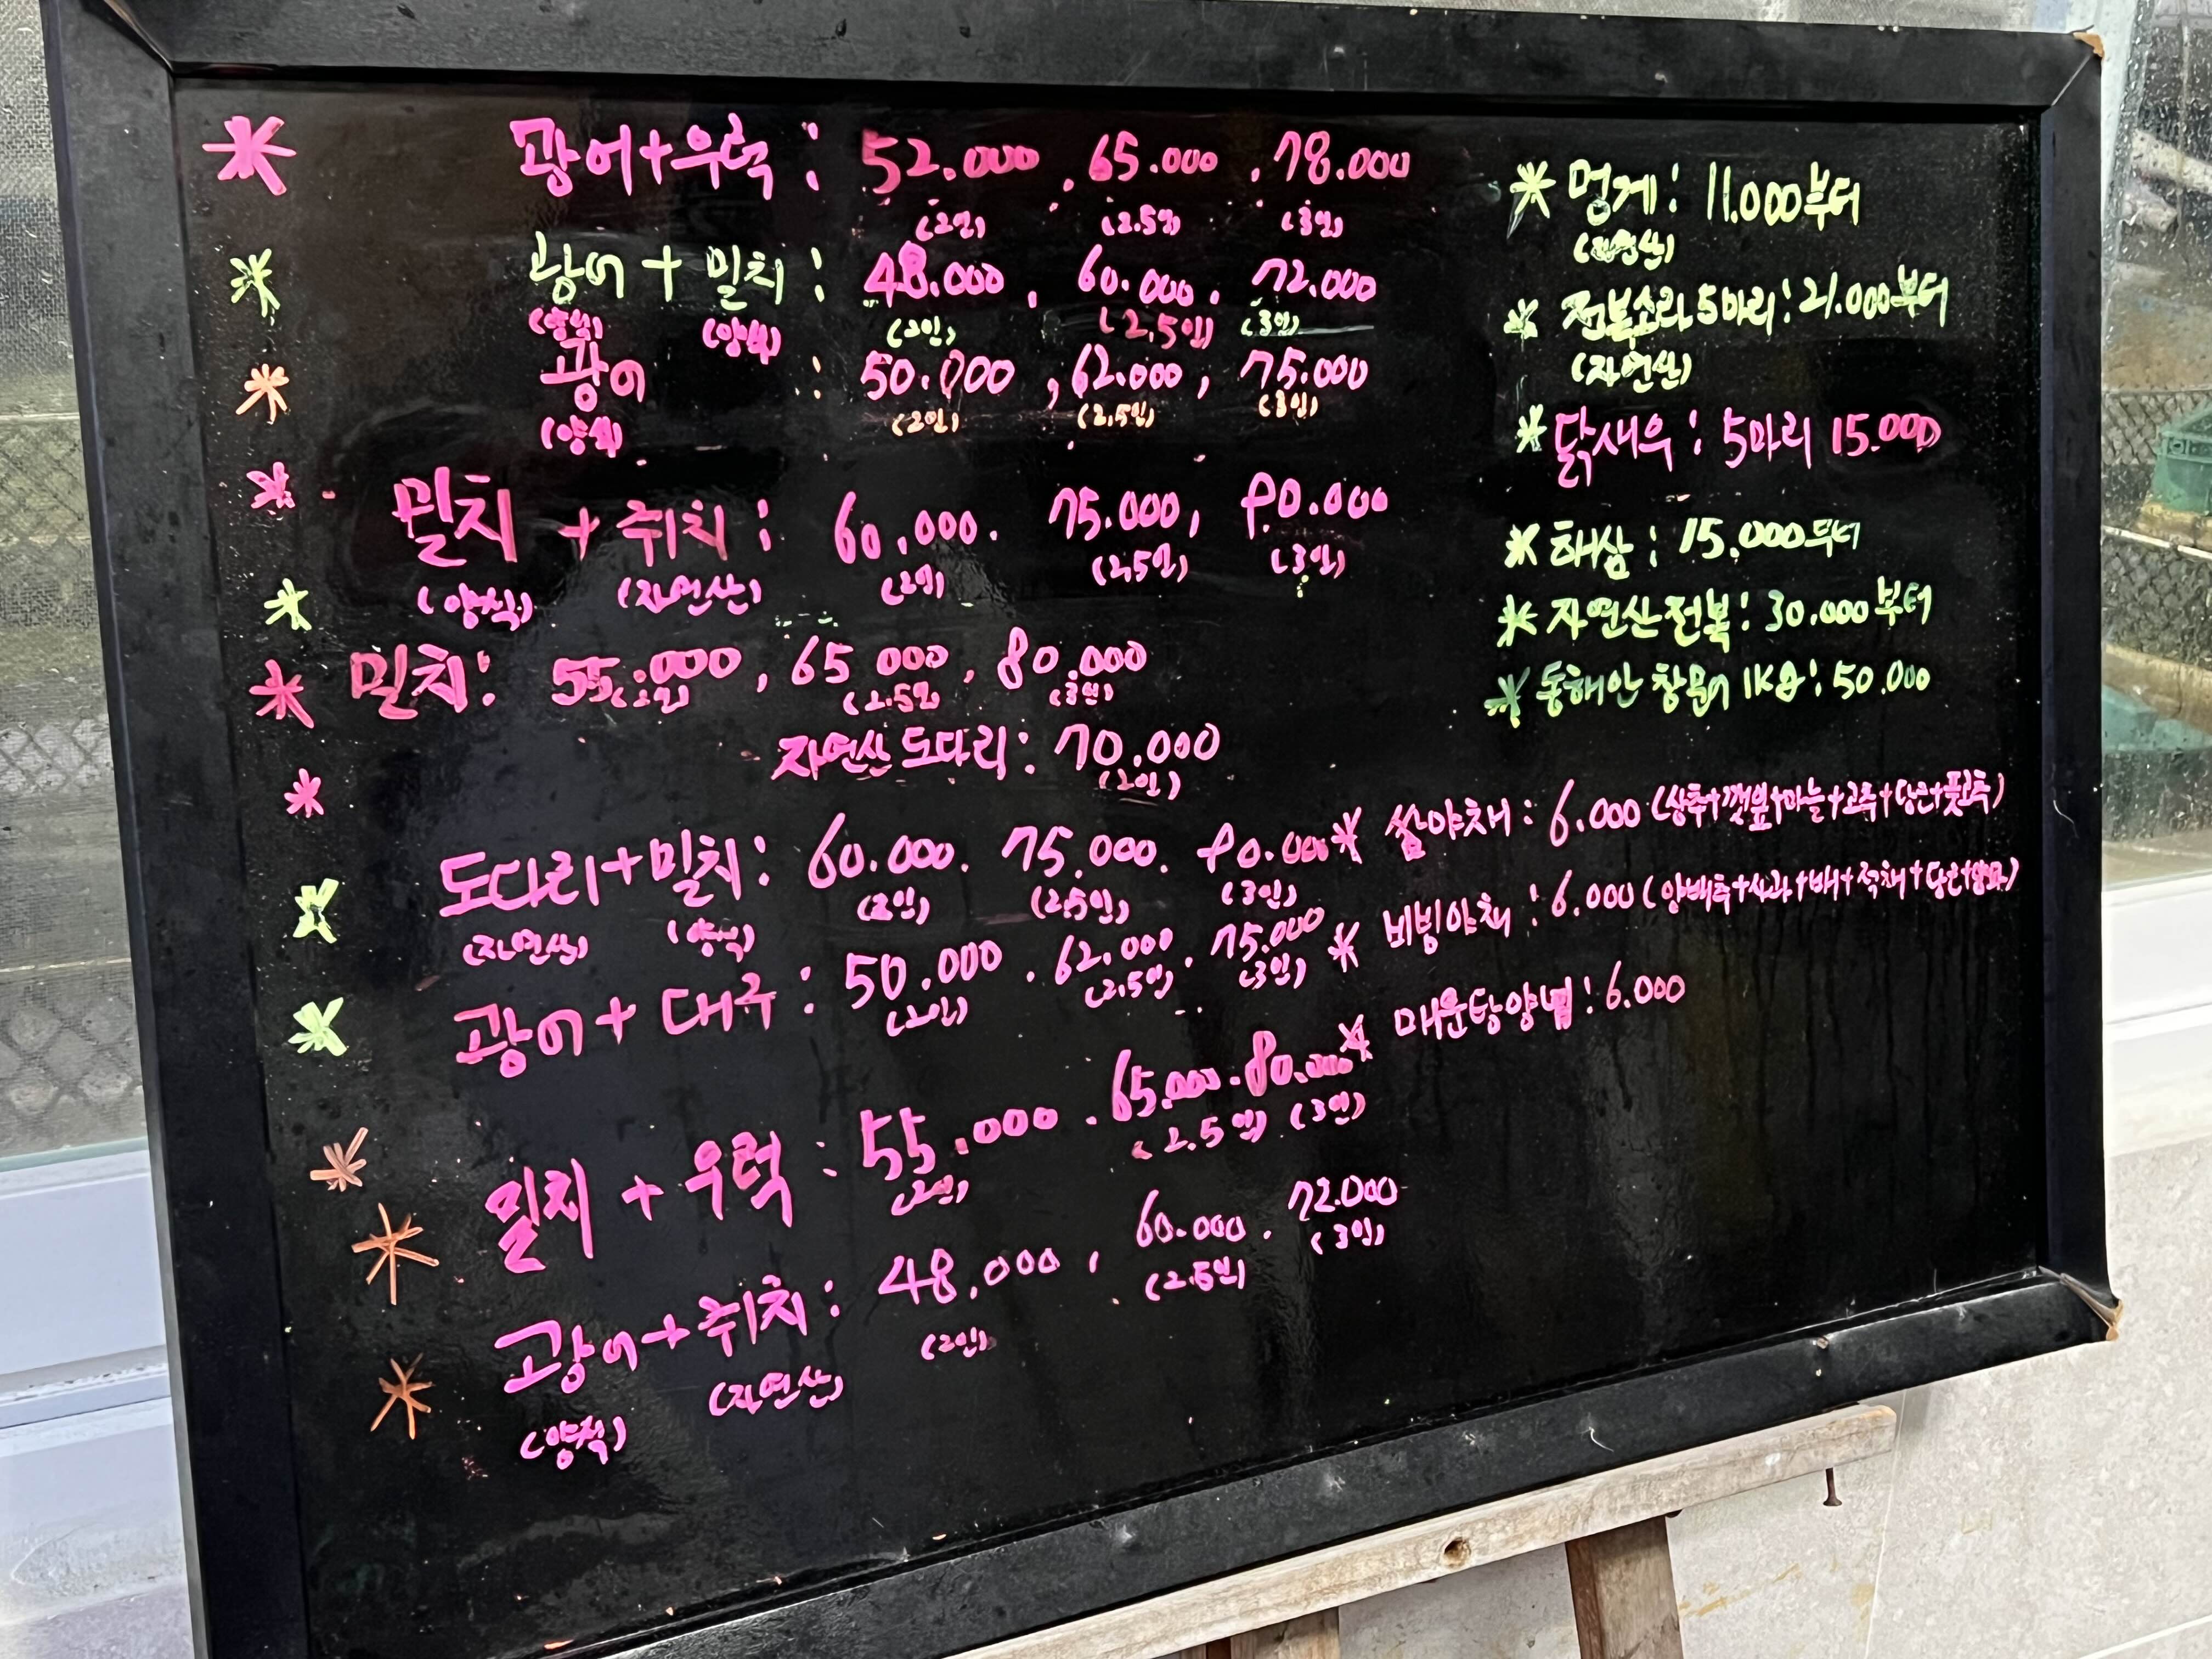 광어+우럭 : 52.000, 65.000, 78.000
(2인) (2.5인) (3인)
광어 + 밀치 : 48.000, 60.000, 72.000
(양식) (양식) (2인) (2.5인) (3인)
광어 : 50.000, 62.000, 75.000
(양식) (2인) (2.5인) (3인)
밀치 + 쥐치 : 60.000. 75.000, 90.000
(양식) (자연산) (2인) (2.5인) (3인)
밀치 : 55.000, 65.000, 80.000
(2인) (2.5인) (3인)
자연산 도다리 : 70.000
(2인)
도다리+밀치 : 60.000. 75.000. 90.000
(자연산) (양식) (2인) (2.5인) (3인)
광어 + 대구 : 50.000. 62.000. 75.000
(2인) (2.5인) (3인)
밀치 + 우럭 : 55.000. 65.000. 80.000
(2인) (2.5인) (3인)
광어+쥐치 : 48.000, 60.000. 72.000
(양식) (자연산) (2인) (2.5인) (3인)
멍게 : 11.000부터
(자연산)
전복소라 5마리 : 21.000부터
(자연산)
닭새우 : 5마리 15.000
해삼 : 15.000부터
자연산전복 : 30.000부터
동해안 참문어 1Kg : 50.000
쌈야채 : 6.000 (상추+깻잎+마늘+고추+당근+풋고추)
비빔야채 : 6.000 (양배추+사과+배+적채+당근+양파)
매운탕양념 : 6.000